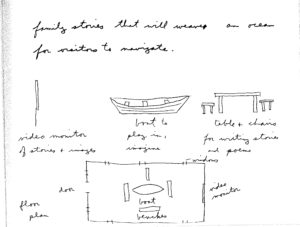 family stories that will weave an ocean
for visitors to navigate.
video monitor
of stories + images
boat to
play in,
imagine
table + chairs
for writing stories
and poems
windows
door
video
monitor
floor
plan
boat
benches